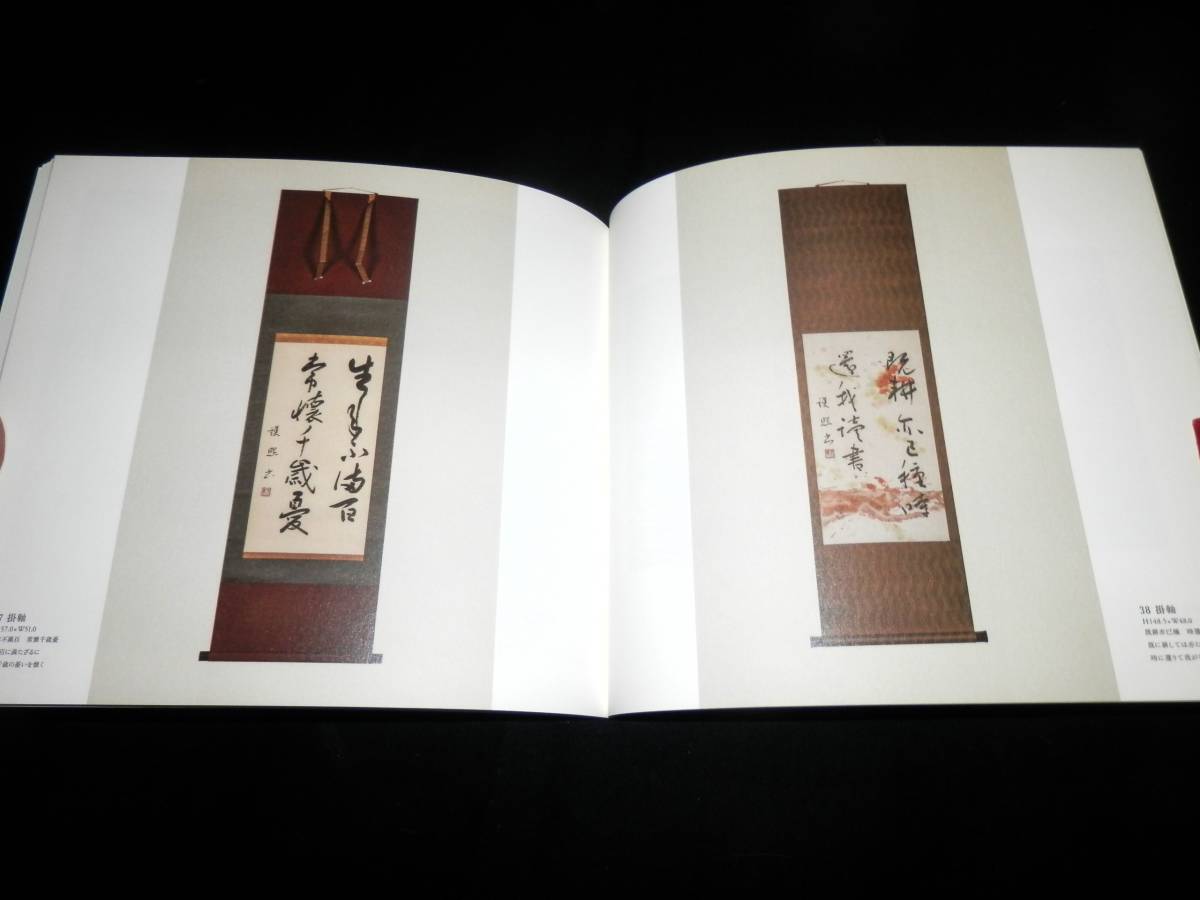 生年不満百
常懐千歳憂
護煕書
7 掛軸
57.0×W51.0
年不満百 常懐千歳憂
百に満たざるに
千歳の憂いを懐く
既耕亦已種時
還我読書
護煕書
38 掛軸
H148.5×W48.0
既耕亦已種 時還
既に耕しては亦た
時に還りて我が